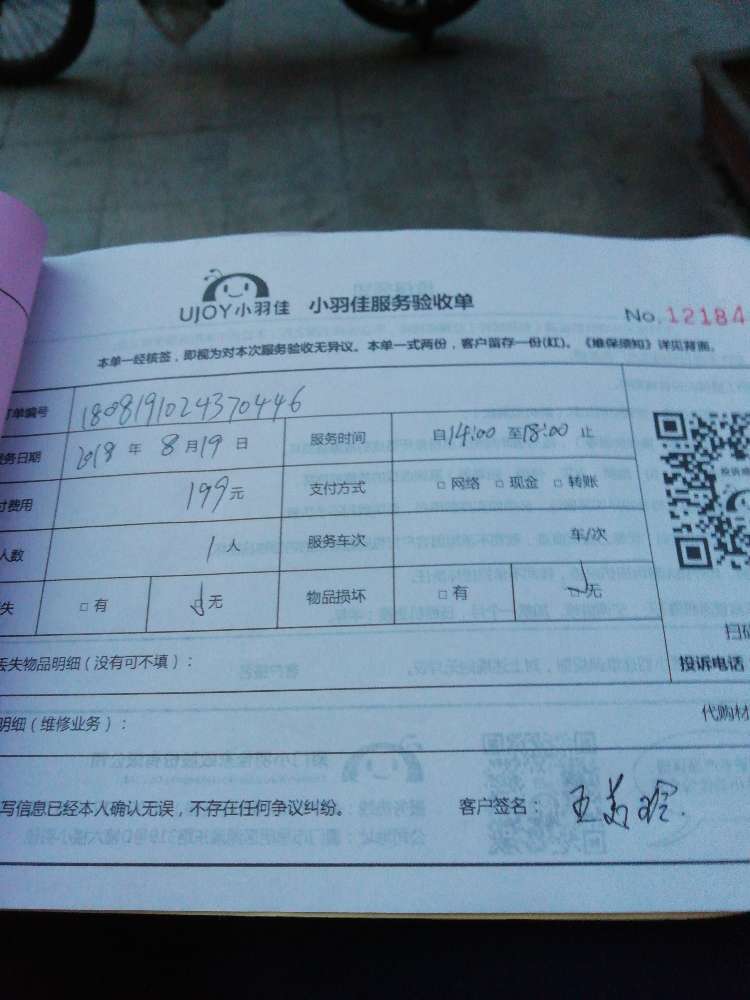 UJOY小羽佳 小羽佳服务验收单 No.12184
本单一经核签，即视为对本次服务验收无异议。本单一式两份，客户留存一份(红)。《维保须知》详见背面。
订单编号 180819102437044​6
服务日期 2018 年 8 月 19 日 服务时间 自14:00 至18:00 止
付费用 199元 支付方式 □ 网络 □ 现金 □ 转账
人数 1人 服务车次 车/次
失 □ 有 □ 无 物品损坏 □ 有 □ 无
扫码
丢失物品明细（没有可不填）： 投诉电话
明细（维修业务）： 代购材
写信息已经本人确认无误，不存在任何争议纠纷。 客户签名：